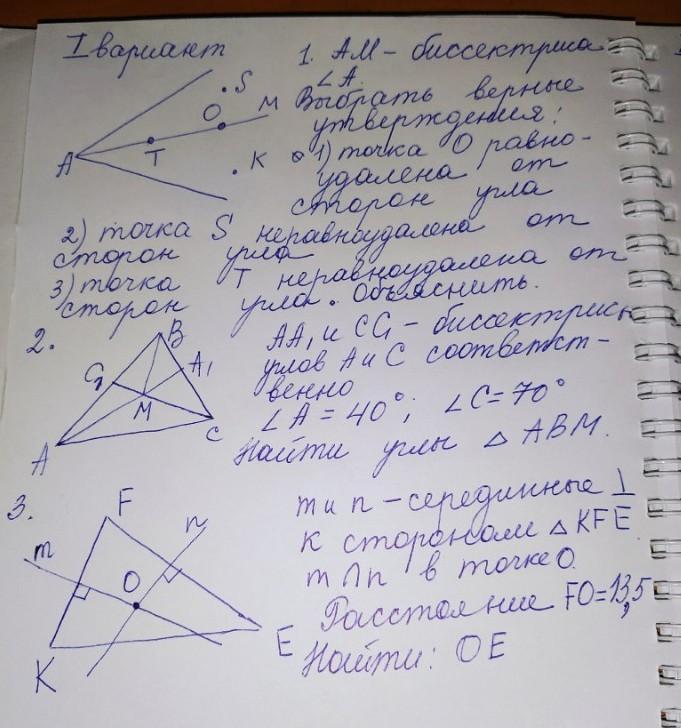 I вариант
1. АМ – биссектриса
∠А.
Выбрать верные
утверждения:
1) точка О равно-
удалена от
сторон угла
S
O
M
A
T
K
2) точка S неравноудалена от
сторон угла
3) точка T неравноудалена от
сторон угла. Объяснить.
2.
B
C₁
A₁
M
A
C
АА₁ и СС₁ – биссектрисы
углов А и С соответст-
венно
∠А = 40°; ∠С = 70°
Найти углы △ АВМ.
3.
F
n
m
O
K
E
m и n – серединные ⊥
к сторонам △ KFE
m ∩ n в точке О.
Расстояние FO = 13,5
Найти: ОЕ